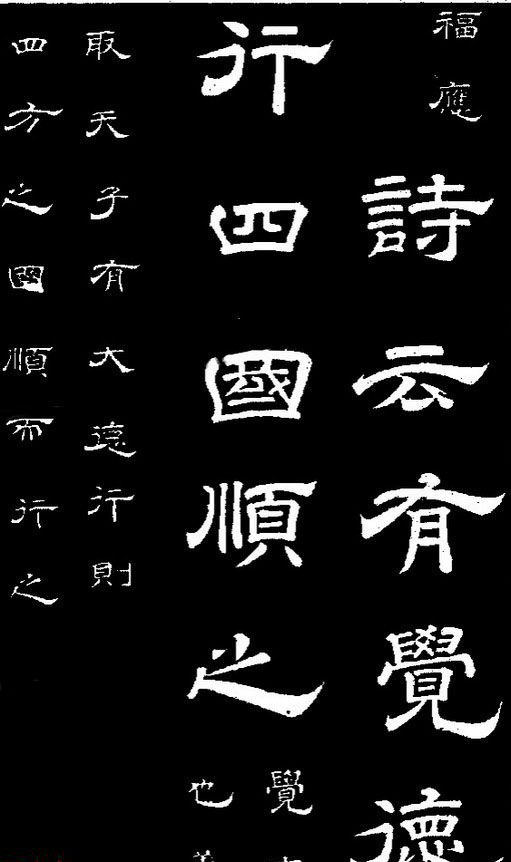 福應
詩云有覺德
行四國順之
覺
也
取天子有大德行則
四方之國順而行之